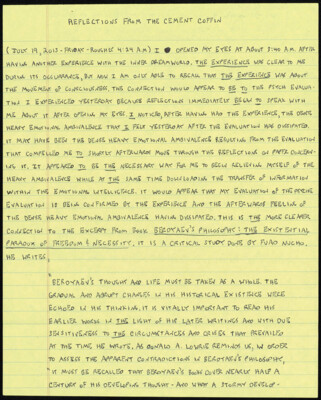 REFLECTIONS FROM THE CEMENT COFFIN
(JULY 19, 2013 - FRIDAY - ROUGHLY 4:29 AM) I OPENED MY EYES AT ABOUT 3:40 AM AFTER
HAVING ANOTHER EXPERIENCE WITH THE INNER DREAMWORLD. THE EXPERIENCE WAS CLEAR TO ME
DURING ITS OCCURRENCE, BUT NOW I AM ONLY ABLE TO RECALL THAT THE EXPERIENCE WAS ABOUT
THE MOVEMENT OF CONSCIOUSNESS. THE CONNECTION WOULD APPEAR TO BE TO THE PSYCH EVALUA-
TION I EXPERIENCED YESTERDAY BECAUSE REFLECTION IMMEDIATELY BEGAN TO SPEAK WITH
ME ABOUT IT AFTER OPENING MY EYES. I NOTICED, AFTER HAVING HAD THE EXPERIENCE, THE DENSE
HEAVY EMOTIONAL AMBIVALENCE THAT I FELT YESTERDAY AFTER THE EVALUATION HAD DISSIPATED.
IT MAY HAVE BEEN THE DENSE HEAVY EMOTIONAL AMBIVALENCE RESULTING FROM THE EVALUATION
THAT COMPELLED ME TO SHORTLY AFTERWARDS MOVE THROUGH THE REFLECTIONS ON PAPER CONCERN-
ING IT. IT APPEARED TO BE THE NECESSARY WAY FOR ME TO BEGIN RELIEVING MYSELF OF THE
HEAVY AMBIVALENCE WHILE AT THE SAME TIME DOWNLOADING THE TRANSFER OF INFORMATION
WITHIN THE EMOTIONAL INTELLIGENCE. IT WOULD APPEAR THAT MY EVALUATION OF THE PSYCHE
EVALUATION IS BEING CONFIRMED BY THE EXPERIENCE AND THE AFTERWARDS FEELING OF
THE DENSE HEAVY EMOTIONAL AMBIVALENCE HAVING DISSIPATED. THIS IS THE MORE CLEARER
CONNECTION TO THE EXCERPT FROM BOOK BERDYAEV'S PHILOSOPHY: THE EXISTENTIAL
PARADOX OF FREEDOM & NECESSITY. IT IS A CRITICAL STUDY DONE BY FUAD NUCHO.
HE WRITES,
BERDYAEV'S THOUGHT AND LIFE MUST BE TAKEN AS A WHOLE. THE
GRADUAL AND ABRUPT CHANGES IN HIS HISTORICAL EXISTENCE WERE
ECHOED IN HIS THINKING. IT IS VITALLY IMPORTANT TO READ HIS
EARLIER WORKS IN THE LIGHT OF HIS LATER WRITINGS AND WITH DUE
SENSITIVENESS TO THE CIRCUMSTANCES AND CRISES THAT PREVAILED
AT THE TIME HE WROTE. AS DONALD A. LOWRIE REMINDS US, IN ORDER
TO ASSESS THE APPARENT CONTRADICTIONS IN BERDYAEV'S PHILOSOPHY,
"IT MUST BE RECALLED THAT BERDYAEV'S BOOKS COVER NEARLY HALF A
CENTURY OF HIS DEVELOPING THOUGHT - AND WHAT A STORMY DEVELOP-